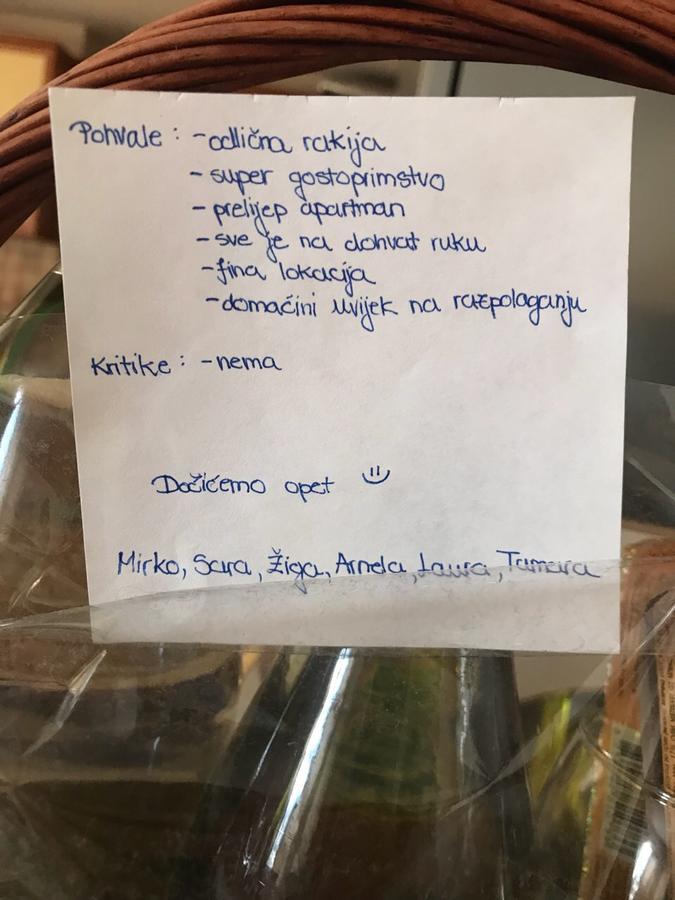 Pohvale : - odlična rakija
- super gostoprimstvo
- prelijep apartman
- sve je na dohvat ruku
- fina lokacija
- domaćini uvijek na razpolaganju
Kritike : - nema
Dočićemo opet
Mirko, Sara, Žiga, Arnela, Laura, Tamara